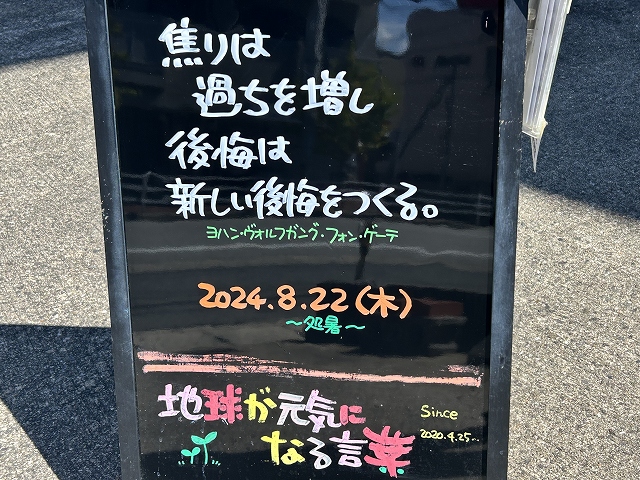 焦りは
過ちを増し
後悔は
新しい後悔をつくる。
ヨハン・ヴォルフガング・フォン・ゲーテ
2024.8.22(木)
～処暑～
地球が元気に
なる言葉
Since
2020.4.25...